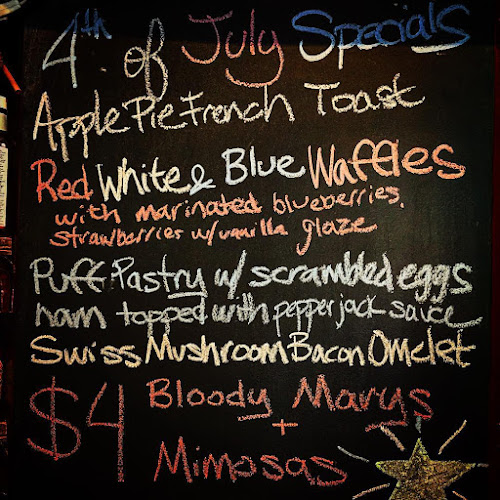 4th of July Specials
Apple Pie French Toast
Red White & Blue Waffles
with marinated blueberries,
strawberries w/ vanilla glaze
Puff Pastry w/ scrambled eggs
ham topped with pepper jack sauce
Swiss Mushroom Bacon Omelet
$4 Bloody Marys
+
Mimosas